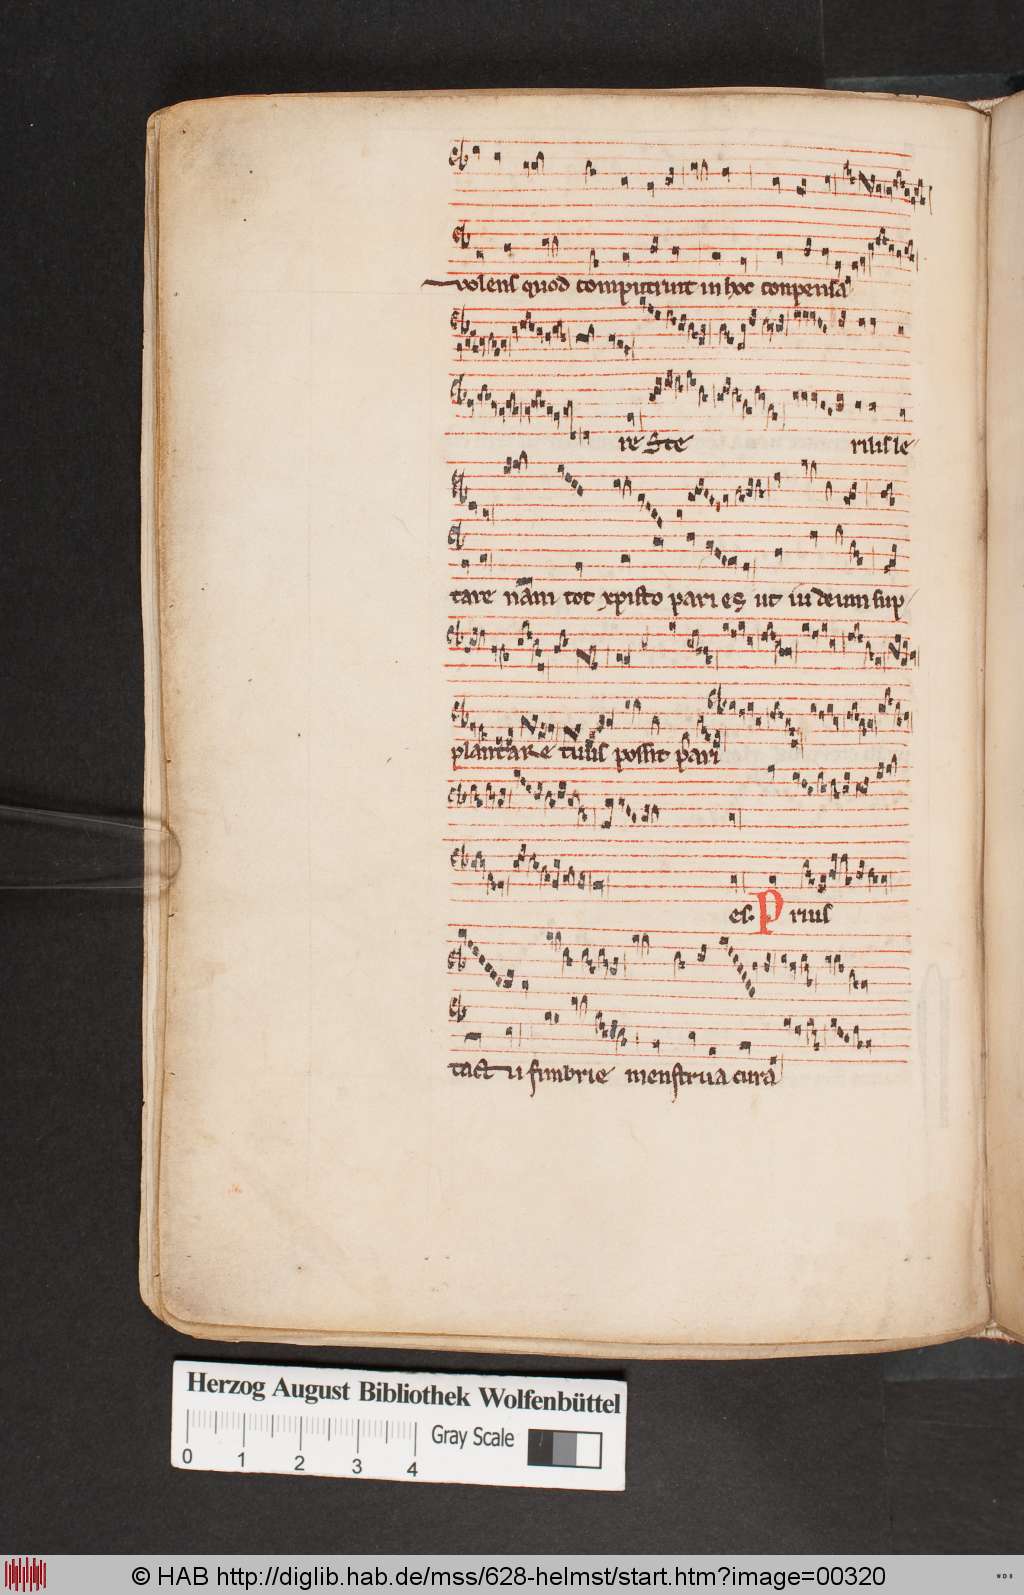 volens quod computrunt in hoc conpensa
re Ste rilis le
tare nam tot xpisto pari es ut iudeum sup
plantare tuus possit pari
es. Prius
tactu fimbrie menstrua cura
Herzog August Bibliothek Wolfenbüttel
Gray Scale
0 1 2 3 4
© HAB http://diglib.hab.de/mss/628-helmst/start.htm?image=00320